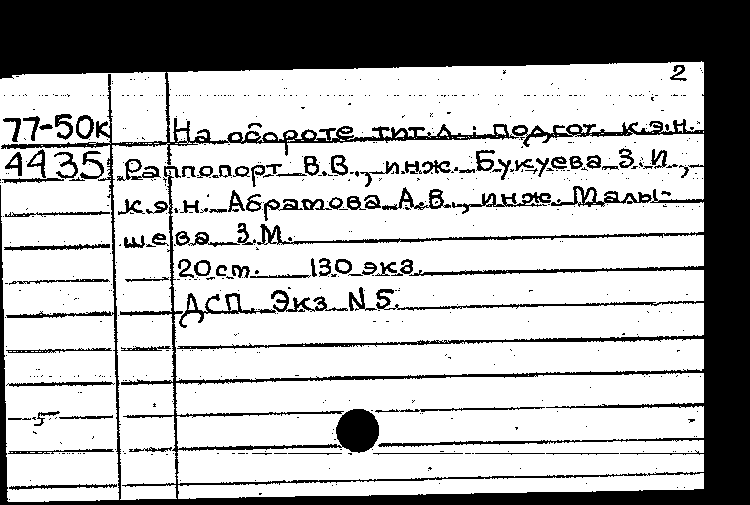 2
77-50к На обороте тит.л.: подгот. к.э.н.
4435 Раппопорт В.В., инж. Букуева З.И.,
к.э.н. Абрамова А.В., инж. Малы-
шева З.М.
20 ст. 130 экз.
ДСП Экз N 5.
5